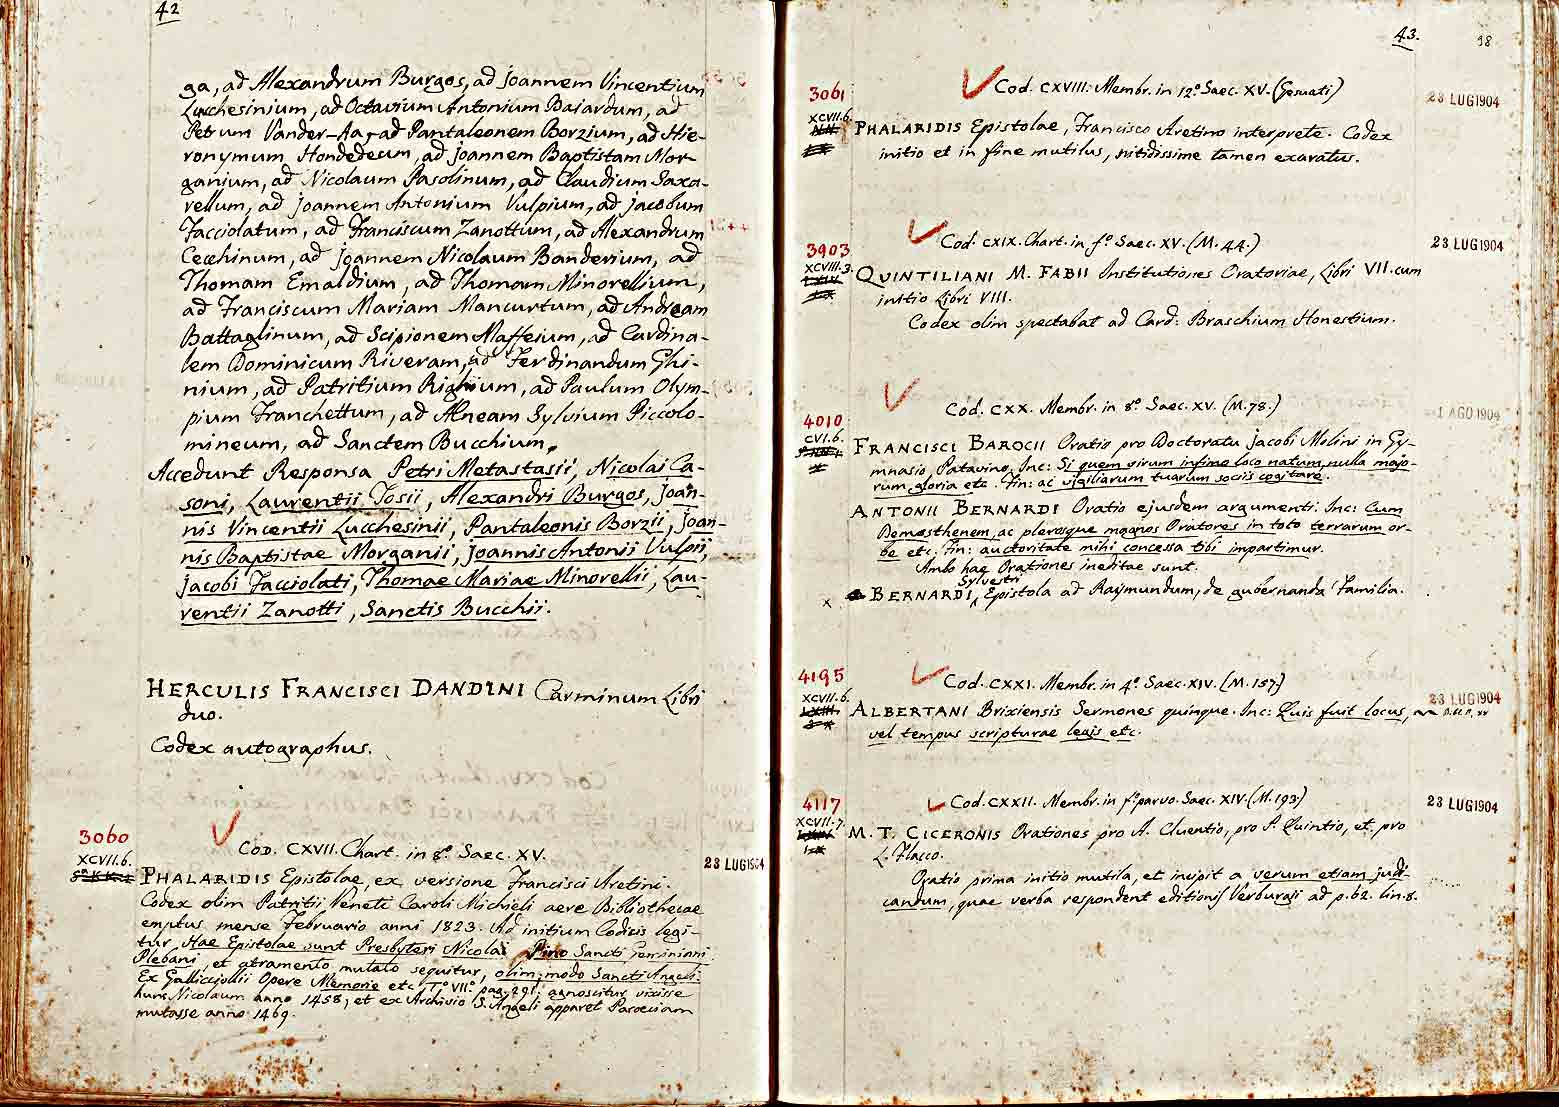 42
ga, ad Alexandrum Burgos, ad Joannem Vincentium
Lucchesinium, ad Octavium Antonium Bajardum, ad
Petrum Vander-Aa, ad Pantaleonem Borzium, ad Hie-
ronymum Hondedeum, ad Joannem Baptistam Mor-
ganium, ad Nicolaum Pasolinum, ad Claudium Saxa-
rellum, ad Joannem Antonium Vulpium, ad Jacobum
Facciolatum, ad Franciscum Zanottum, ad Alexandrum
Cecchinum, ad Joannem Nicolaum Banderium, ad
Thomam Emaldium, ad Thomam Minorellium,
ad Franciscum Mariam Mancurtum, ad Andream
Battaglinum, ad Scipionem Maffeium, ad Cardina-
lem Dominicum Riveram, ad Ferdinandum Ghi-
nium, ad Patritium Righium, ad Paulum Olym-
pium Franchettum, ad Æneam Sylvium Piccolo-
mineum, ad Sanctem Bucchium.
Accedunt Responsa Petri Metastasii, Nicolai Ca-
soni, Laurentii Tosii, Alexandri Burgos, Joan-
nis Vincentii Lucchesinii, Pantaleonis Borzii, Joan-
nis Baptistae Morganii, Joannis Antonii Vulpii,
Jacobi Facciolati, Thomae Mariae Minorellii, Lau-
rentii Zanotti, Sanctis Bucchii.
HERCULIS FRANCISCI DANDINI Carminum Libri
duo.
Codex autographus.
3060
XCVII.6.
COD. CXVII. Chart. in 8º Saec. XV.
23 LUG 1904
PHALARIDIS Epistolae, ex versione Francisci Aretini.
Codex olim Patritii Veneti Caroli Michieli aere Bibliothecae
emptus mense Februario anni 1823. Ad initium Codicis legi-
tur Hae Epistolae sunt Presbyteri Nicolai Pino Sancti Geminiani
Plebani, et atramento mutato sequitur, olim, modo Sancti Angeli.
Ex Galliciollii Opere Memorie etc. Tº VIIº pag. 291. agnoscitur vixisse
hunc Nicolaum anno 1458, et ex Archivio S. Angeli apparet Paroeciam
mutasse anno 1469.
43.
98
3061
XCVII.6.
Cod. CXVIII. Membr. in 12º Saec. XV. (Gesuati)
23 LUG 1904
PHALARIDIS Epistolae, Francisco Aretino interprete. Codex
initio et in fine mutilus, nitidissime tamen exaratus.
3903
XCVIII.3.
Cod. CXIX. Chart. in fº Saec. XV. (M. 44.)
23 LUG 1904
QUINTILIANI M. FABII Institutiones Oratoriae, Libri VII. cum
initio Libri VIII.
Codex olim spectabat ad Card: Braschium Honestium.
4010
CVI.6.
Cod. CXX. Membr. in 8º Saec. XV. (M. 78.)
-1 AGO 1904
FRANCISCI BAROCII Oratio pro Doctoratu Jacobi Molini in Gy-
mnasio Patavino. Inc: Si quem virum infimo loco natum, nulla majo-
rum gloria etc. Fin: ac vigiliarum tuarum sociis cogitare.
ANTONII BERNARDI Oratio ejusdem argumenti. Inc: Cum
Demosthenem, ac plerosque magnos Oratores in toto terrarum or-
be etc. Fin: auctoritate mihi concessa tibi impartimur.
Ambo hae Orationes ineditae sunt.
Sylvestri
x BERNARDI, Epistola ad Raymundum, de gubernanda Familia.
4195
XCVII.6.
Cod. CXXI. Membr. in 4º Saec. XIV. (M. 157.)
23 LUG 1904
ALBERTANI Brixiensis Sermones quinque. Inc: Quis fuit locus,
vel tempus scripturae legis etc.
4117
XCVII.7.
Cod. CXXII. Membr. in fº parvo. Saec. XIV. (M. 193.)
23 LUG 1904
M. T. CICERONIS Orationes pro A. Cluentio, pro P. Quintio, et pro
L. Flacco.
Oratio prima initio mutila, et incipit a verum etiam judi-
candum, quae verba respondent editionis Verburgii ad p. 62. lin. 8.